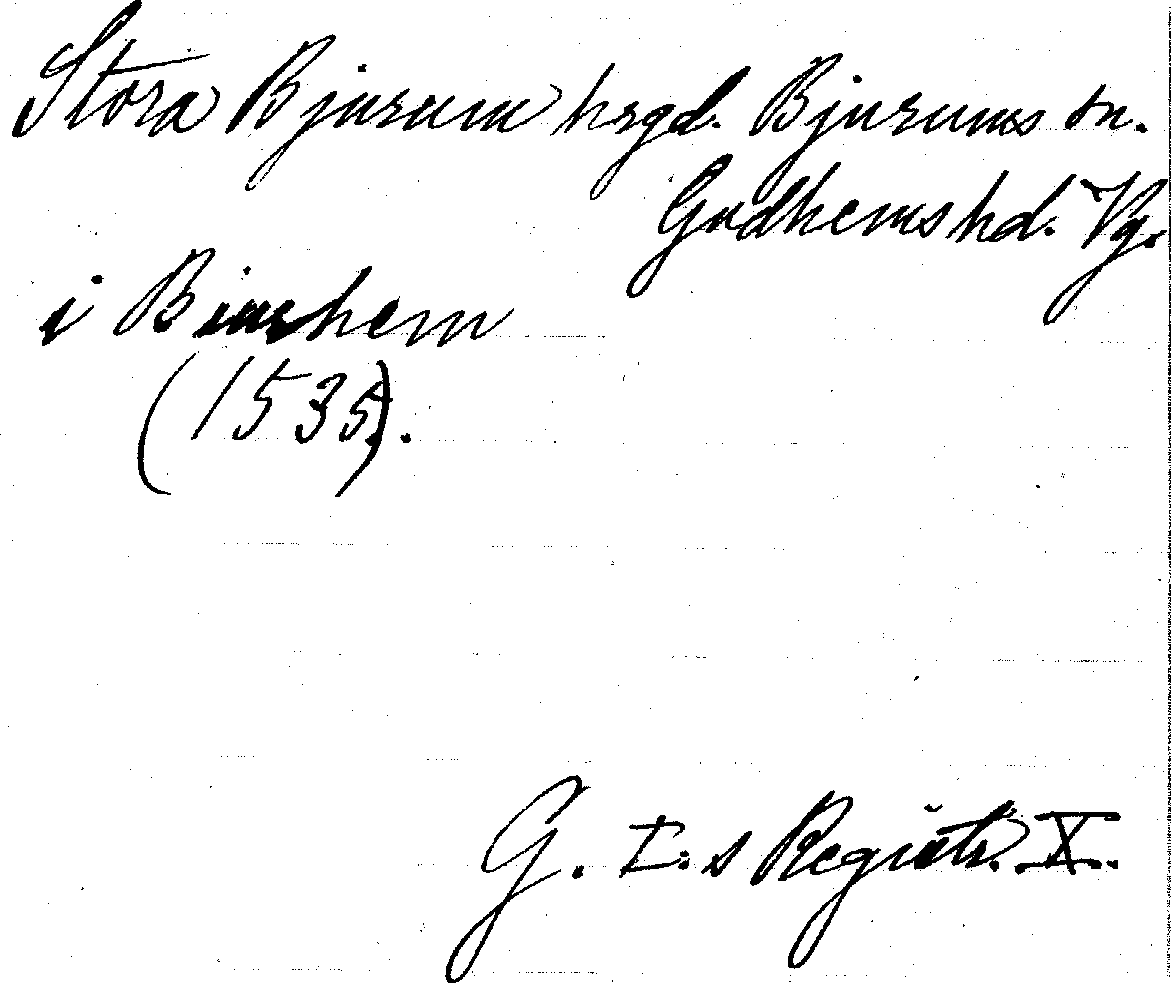 Stora Bjurum hrgd. Bjurums sn.
Gudhems hd. Vg.
i Biurhem
(1535).
G. I:s Registr. X.